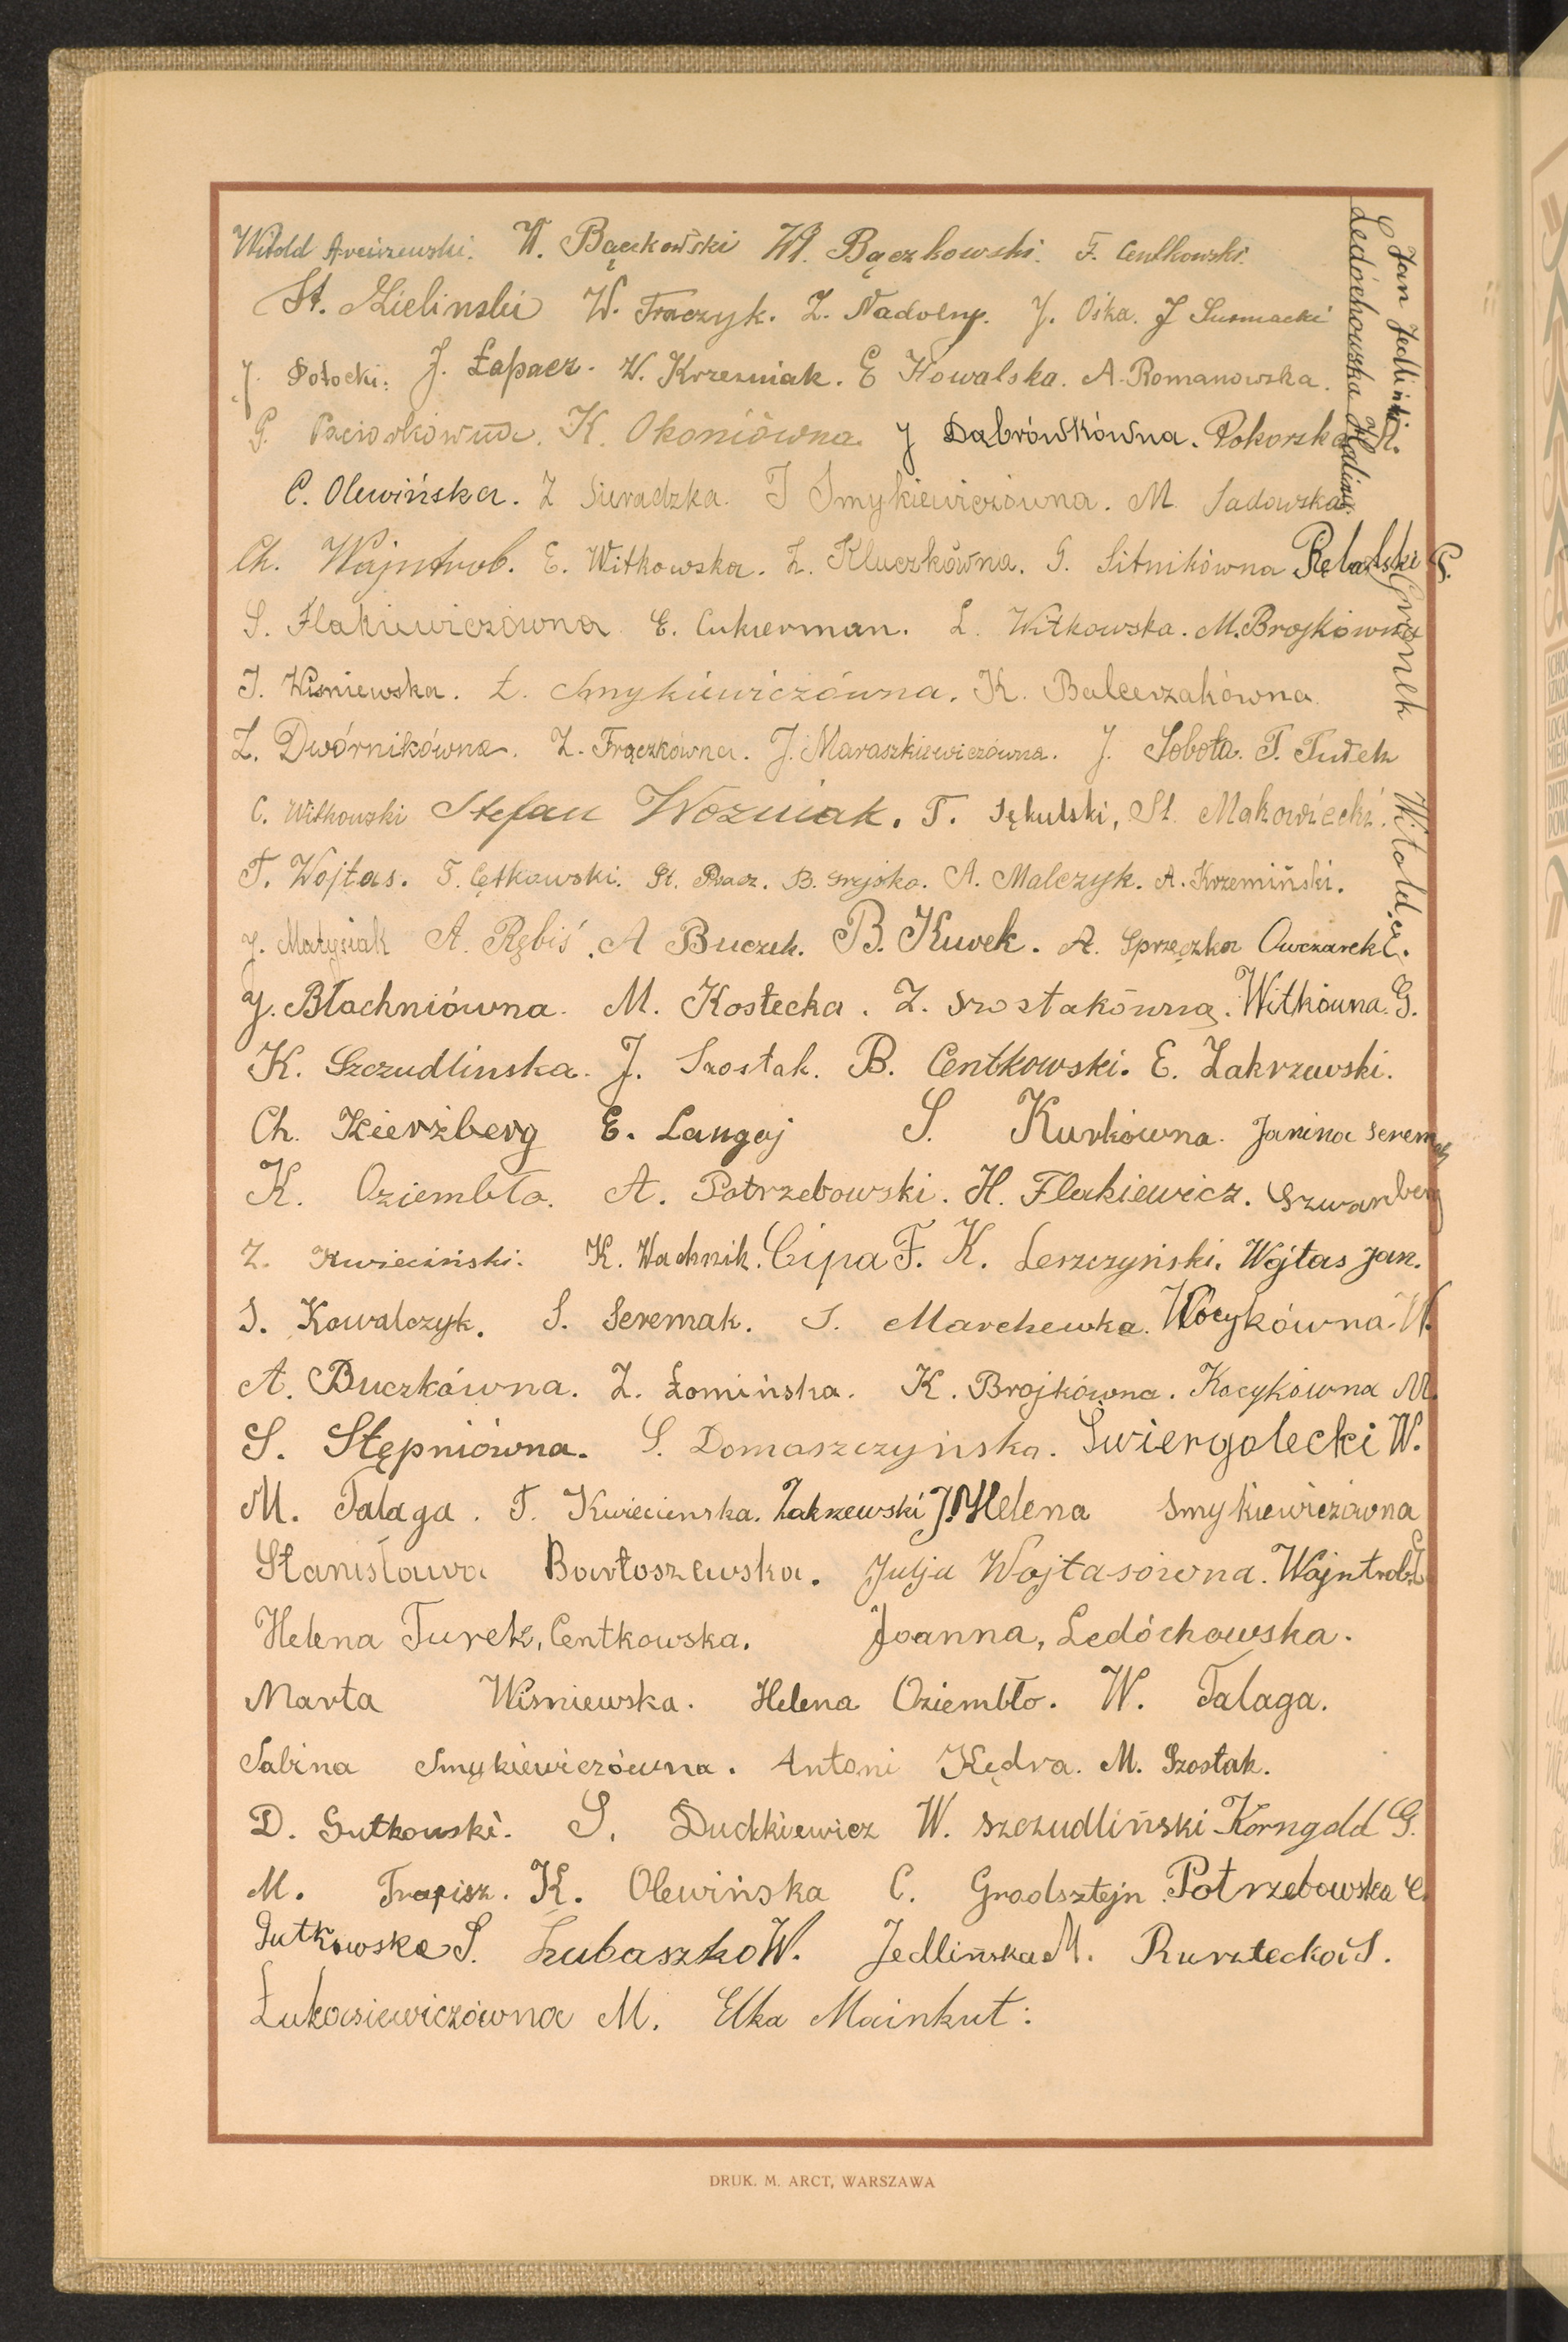 Witold Arciszewski. W. Bączkowski Wł. Bączkowski. F. Centkowski.
St. Zielinski W. Fraczyk. Z. Nadolny. J. Ośka. J Susmacki
J. Potocki. J. Łapacz. W. Krzesniak. E Kowalska. A. Romanowska.
G. Paciorkówna. K. Okoniówna. J Dąbrówkówna. Pokorska M.
C. Olewińska. Z Sieradzka. J Smykiewiczówna. M. Sadowska.
Ch. Wajntrob. E. Witkowska. Z. Kluczkówna. G. Sitnikówna P.
S. Flakiewiczówna E. Cukierman. L. Witkowska. M. Brojkówna
J. Wisniewska. Ł. Smykiewiczówna. K. Balcerzakówna.
Z. Dwórnikówna. Z. Frączkówna. J. Maraszkiewiczówna. J. Sobota. T. Tutek
C. Witkowski Stefan Wozniak. T. Sękulski, St. Makowiecki.
T. Wojtas. T. Cętkowski. St. Ptasz. B. Gryjsko. A. Malczyk. A. Krzemiński.
J. Matysiak A. Rębiś. A Buczek. B. Kuvek. A. Sprzęczka Owczarek C.
J. Błachniówna. M. Kostecka. Z. Szostakówna. Witkówna. G.
K. Szczudlinska. J. Szostak. B. Centkowski. E. Zakrzewski.
Ch. Kierżberg E. Langaj S. Kurkówna. Janina Seremak
K. Oziembło. A. Potrzebowski. H. Flakiewicz. Szwarcberg
Z. Kwieciński. K. Wachnik. Cipa F. K. Leszczyński. Wojtas Jan.
S. Kowalczyk. S. Seremak. S. Marchewka. Wócykówna. W.
A. Buczkówna. Z. Łomińska. K. Brojkówna. Kocykówna M.
S. Stępniówna. S. Domaszczyńska. Świergolecki W.
M. Talaga. T. Kwiecienska. Zakrzewski J. Helena Smykiewiczówna
Stanisława Bartoszewska. Julja Wojtasówna. Wajntrob
Helena Turek, Centkowska. Joanna, Ledóchowska.
Marta Wisniewska. Helena Oziembło. W. Talaga.
Sabina Smykiewiczówna. Antoni Kędra. M. Szostak.
D. Gutkowski. S. Duckiewicz W. Szczudliński Korngold G.
M. Trapisz. K. Olewińska C. Gradsztejn. Potrzebowska C.
Gutkowska S. Szubaszko W. Jedlińska M. Rursztecka S.
Łukasiewiczówna M. Elka Mainkut:
Jan Jedliński.
Ledóchowska Halina.
Gronek Witold.
DRUK. M. ARCT, WARSZAWA